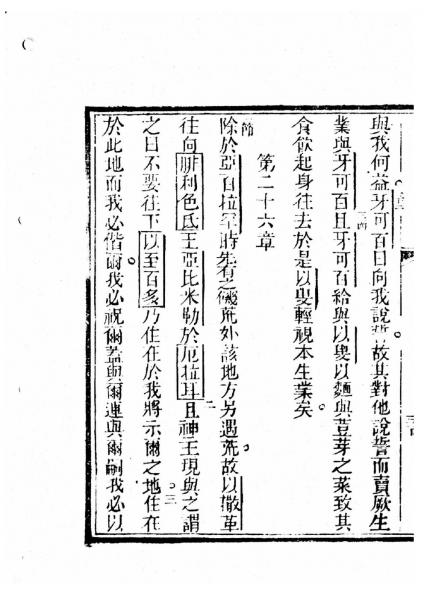 與我何益牙可百曰向我說誓故其對他說誓而賣厥生
業與牙可百且牙可百給與以叟以麵與荳芽之菜致其
食飲起身往去於是以叟輕視本生業矣
第二十六章
節除於亞百拉罕時先有之饑荒外該地方另遇荒故以撒革
往向腓利色氐王亞比米勒於厄拉耳二且神王現與之謂
之曰不要往下以至百多乃住在於我將示爾之地三住在
於此地而我必偕爾我必祝爾蓋與爾連與爾嗣我必以